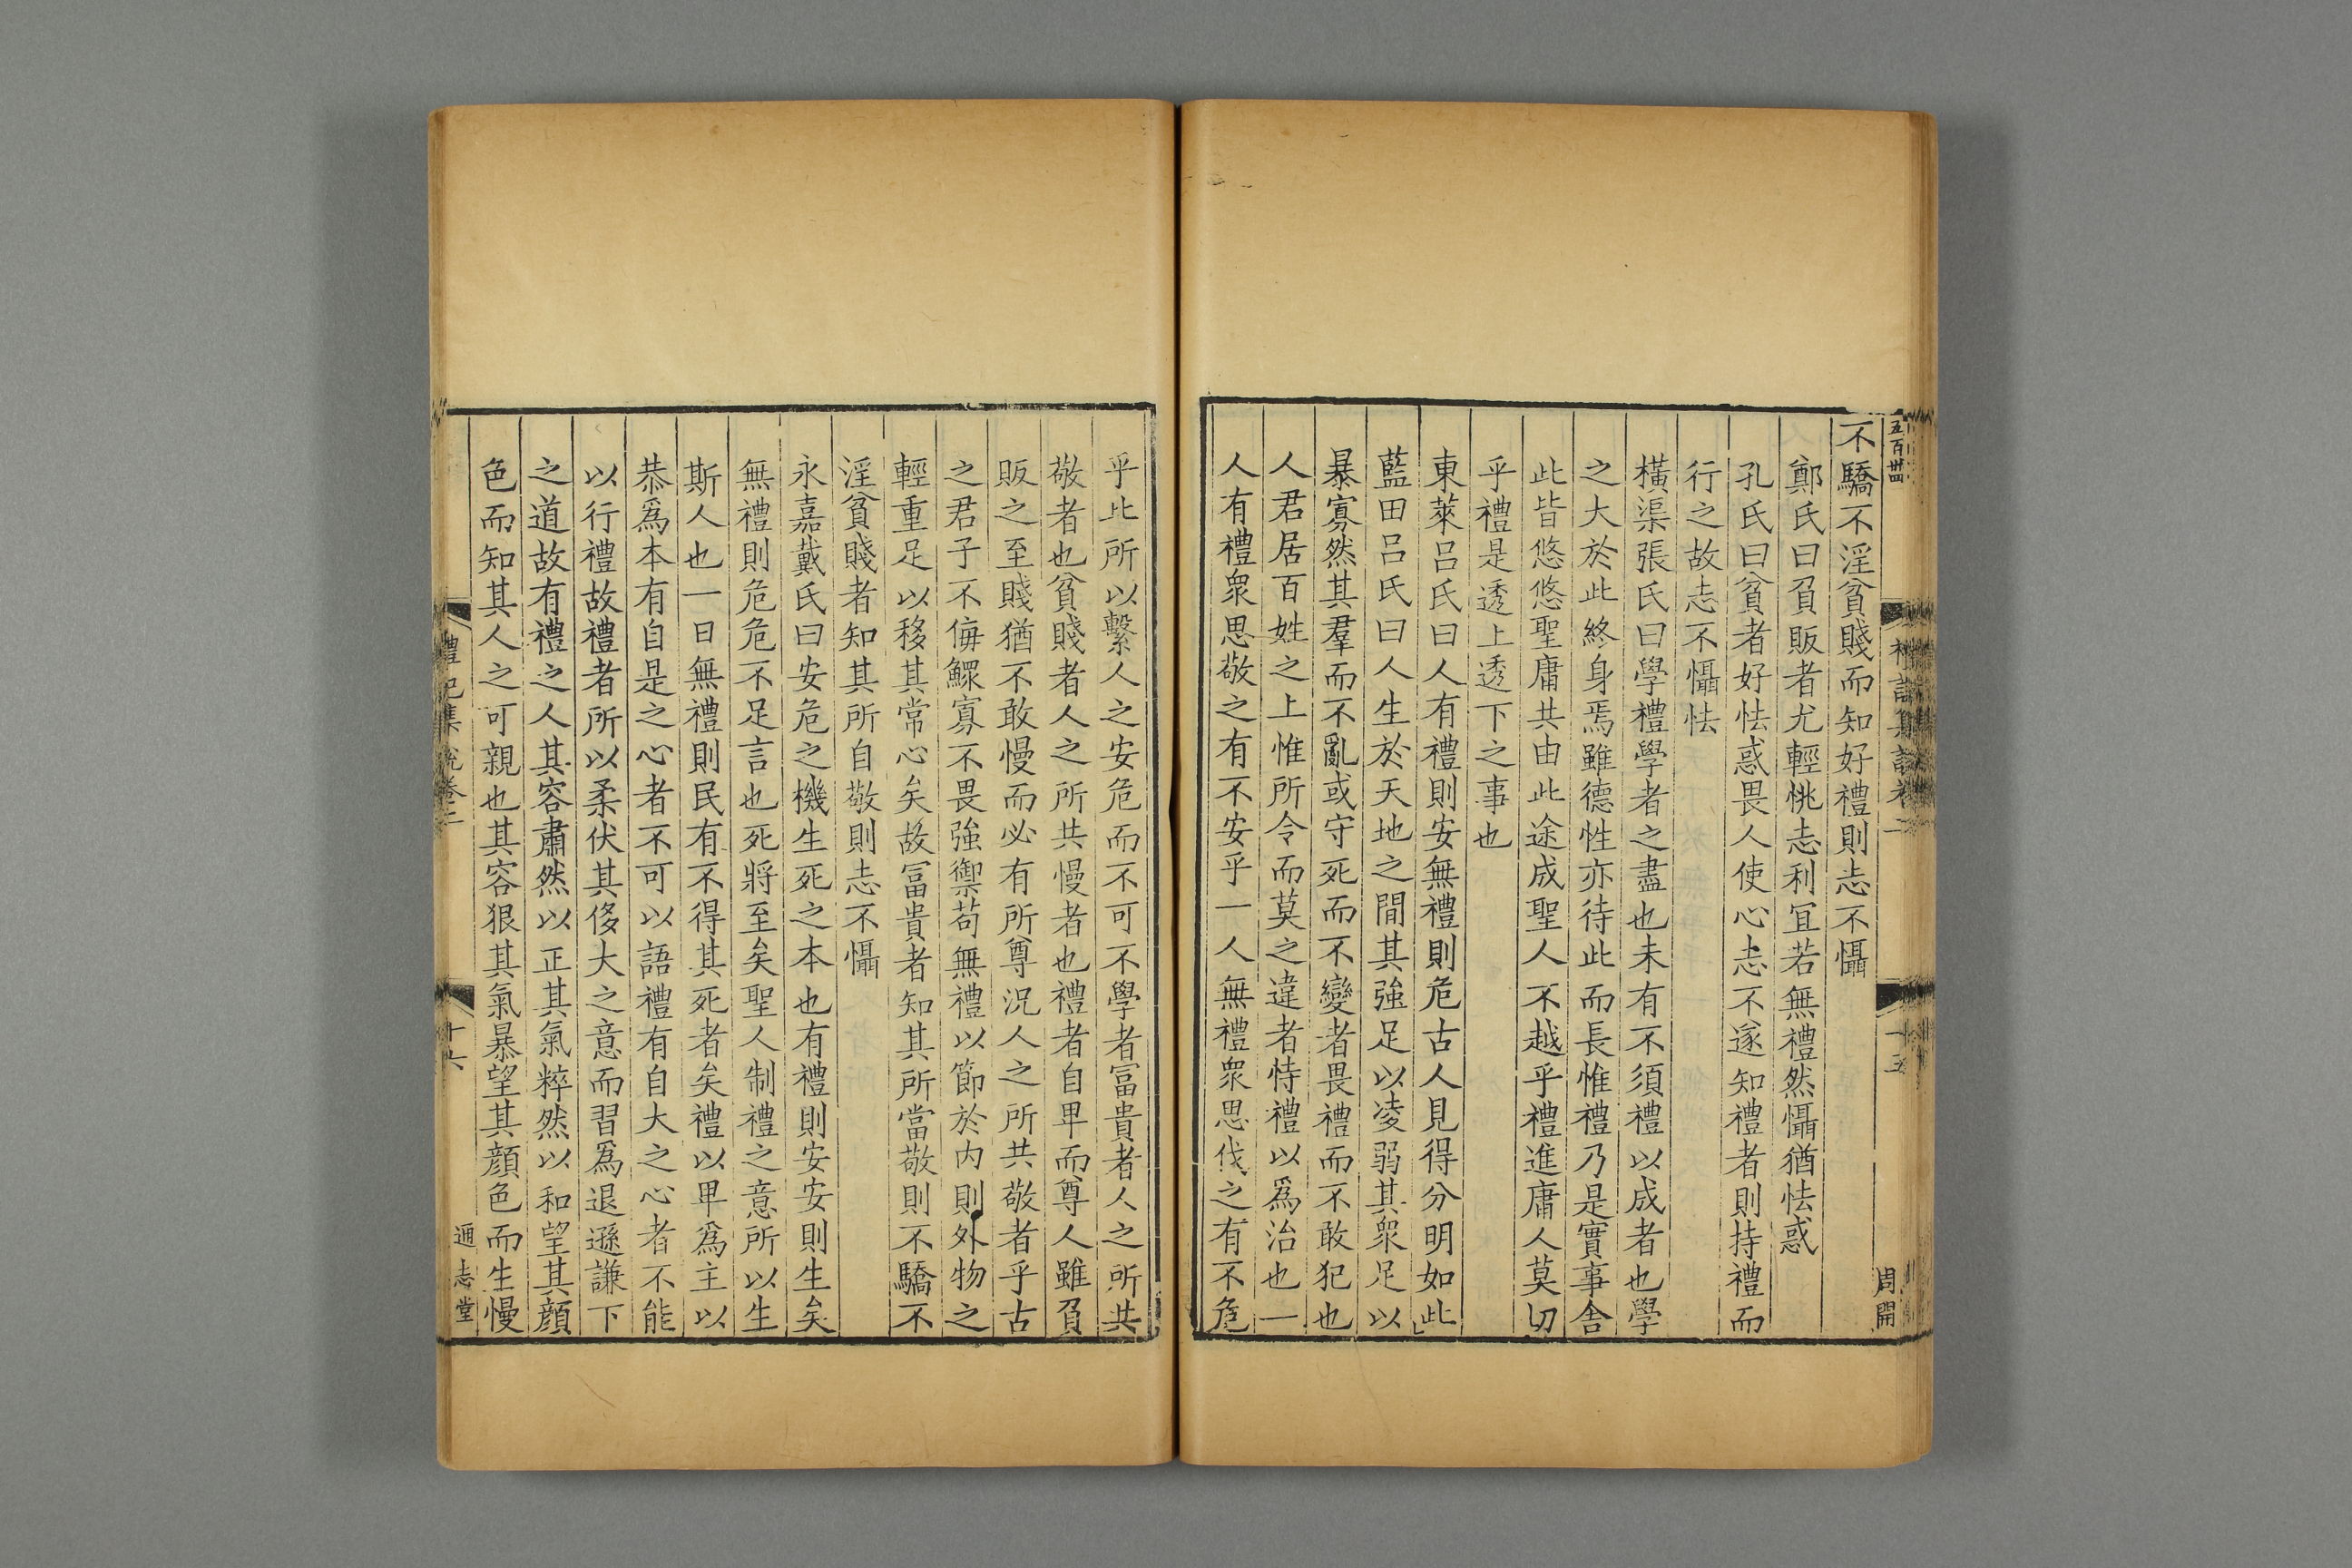 五百卌
不驕不淫貧賤而知好禮則志不懾
鄭氏曰負販者尤輕恌志利冝若無禮然懾猶怯惑
孔氏曰貧者好怯惑畏人使心志不遂知禮者則持禮而
行之故志不懾怯
橫渠張氏曰學禮學者之盡也未有不須禮以成者也學
之大於此終身焉雖德性亦待此而長惟禮乃是實事舍
此皆悠悠聖庸共由此途成聖人不越乎禮進庸人莫切
乎禮是透上透下之事也
東萊呂氏曰人有禮則安無禮則危古人見得分明如此
藍田呂氏曰人生於天地之間其強足以凌弱其衆足以
暴寡然其羣而不亂或守死而不變者畏禮而不敢犯也
人君居百姓之上惟所令而莫之違者恃禮以爲治也一
人有禮衆思敬之有不安乎一人無禮衆思伐之有不危
禮記集說卷二
十五
周開
乎此所以繫人之安危而不可不學者冨貴者人之所共
敬者也貧賤者人之所共慢者也禮者自卑而尊人雖負
販之至賤猶不敢慢而必有所尊況人之所共敬者乎古
之君子不侮鰥寡不畏強禦苟無禮以節於内則外物之
輕重足以移其常心矣故冨貴者知其所當敬則不驕不
淫貧賤者知其所自敬則志不懾
永嘉戴氏曰安危之機生死之本也有禮則安安則生矣
無禮則危危不足言也死將至矣聖人制禮之意所以生
斯人也一日無禮則民有不得其死者矣禮以卑爲主以
恭爲本有自是之心者不可以語禮有自大之心者不能
以行禮故禮者所以柔伏其侈大之意而習爲退遜謙下
之道故有禮之人其容肅然以正其氣粹然以和望其顔
色而知其人之可親也其容狠其氣暴望其顔色而生慢
禮記集說卷二
十六
通志堂